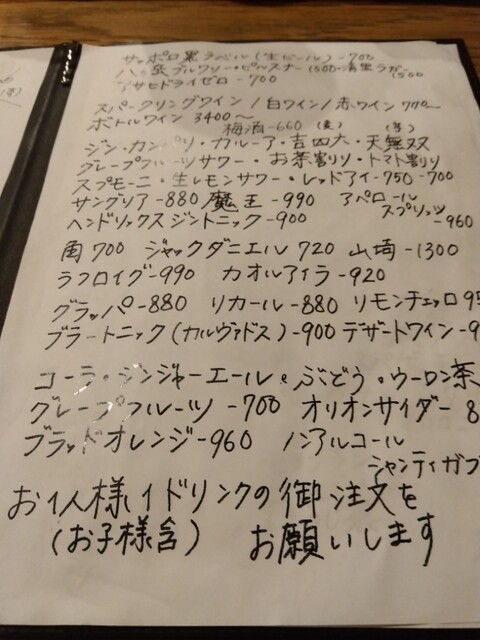 サッポロ黒ラベル(生ビール)-700
八ヶ岳ブルワリー・ピルスナー1500・清里ラガー1500
アサヒドライゼロ-700
スパークリングワイン/白ワイン/赤ワイン770~
ボトルワイン 3400~
梅酒-660 (麦) (芋)
ジン・カンパリ・カルーア・吉四六・天無双
グレープフルーツサワー・お茶割り・トマト割り
スプモーニ・生レモンサワー・レッドアイ-750-700
サングリア-880 魔王-990 アペロールスプリッツ-960
ヘンドリックスジントニック-900
角700 ジャックダニエル720 山崎-1300
ラフロイグ-990 カオルアイラ-920
グラッパ-880 リカール-880 リモンチェッロ95
ブラートニック(カルヴァドス)-900 デザートワイン-9
コーラ・ジンジャーエール・ぶどう・ウーロン茶
グレープフルーツ-700 オリオンサイダー-8
ブラッドオレンジ-960 ノンアルコール
シャンティガフ
お1人様1ドリンクの御注文を
(お子様含) お願いします